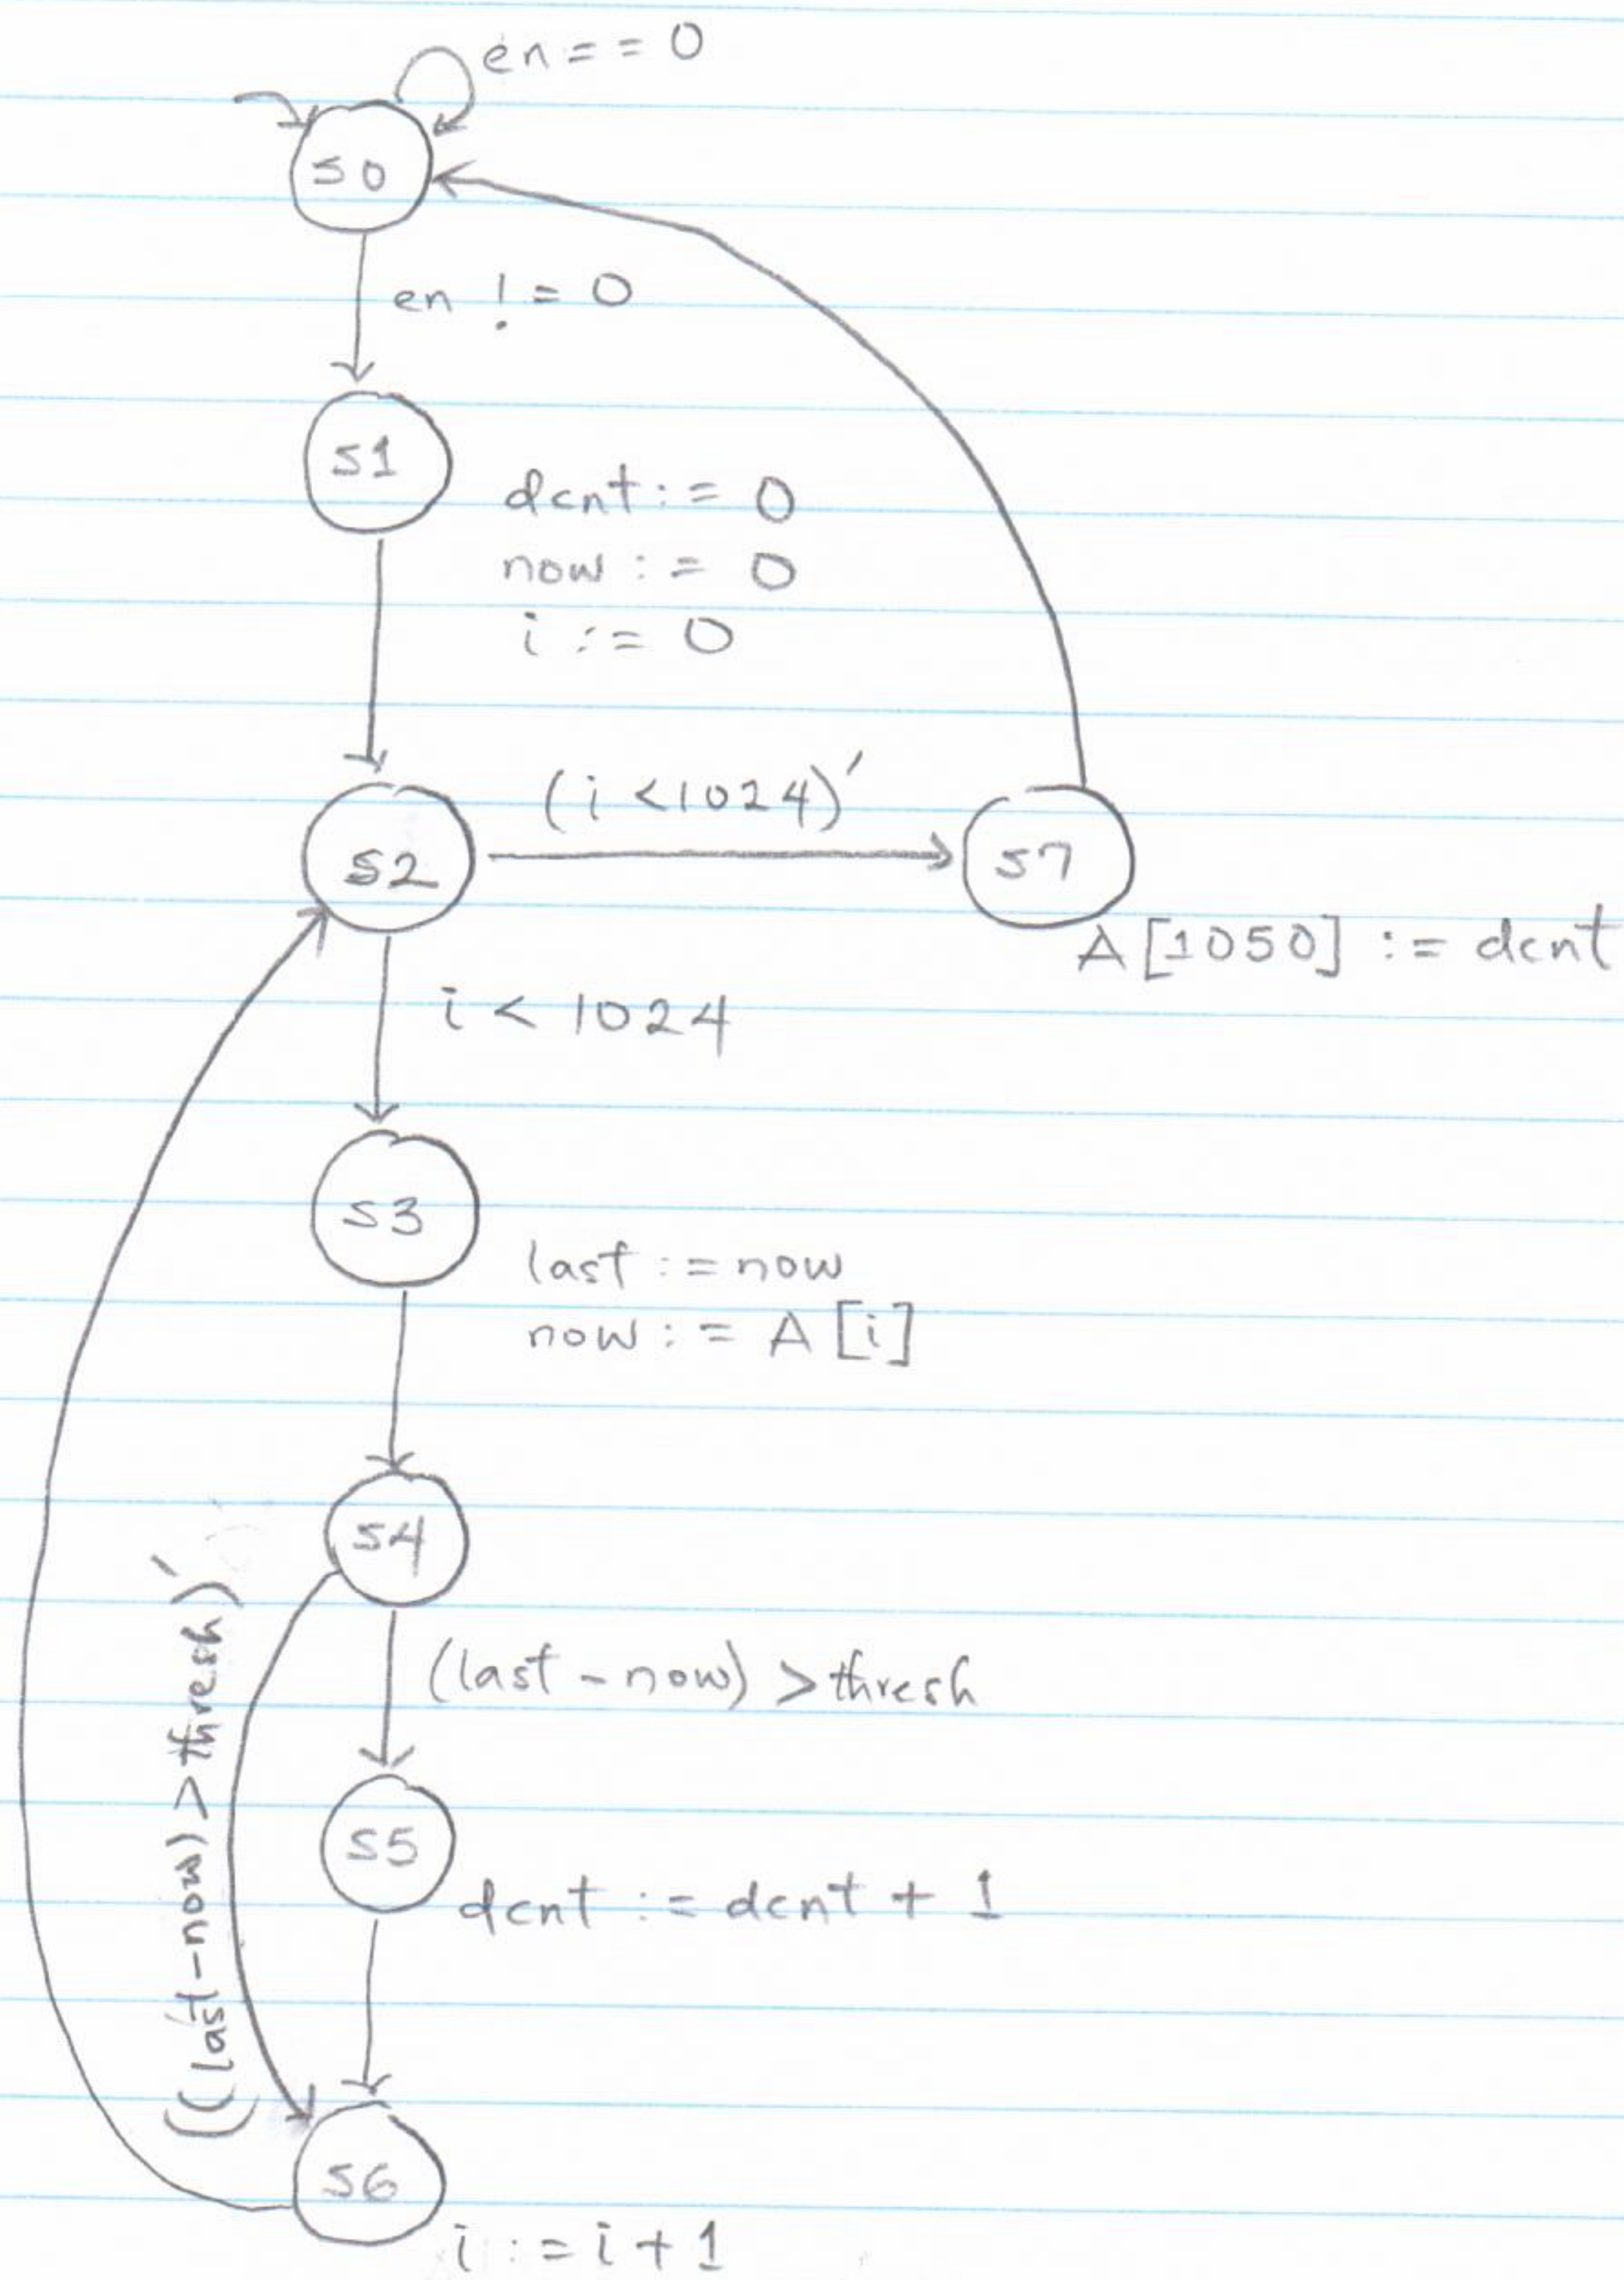 en == 0
S0
en != 0
S1
dcnt := 0
now := 0
i := 0
(i <1024)'
S2
S7
A[1050] := dcnt
i < 1024
S3
last := now
now := A[i]
S4
(last - now) > thresh
((last - now) > thresh)'
S5
dcnt := dcnt + 1
S6
i := i + 1